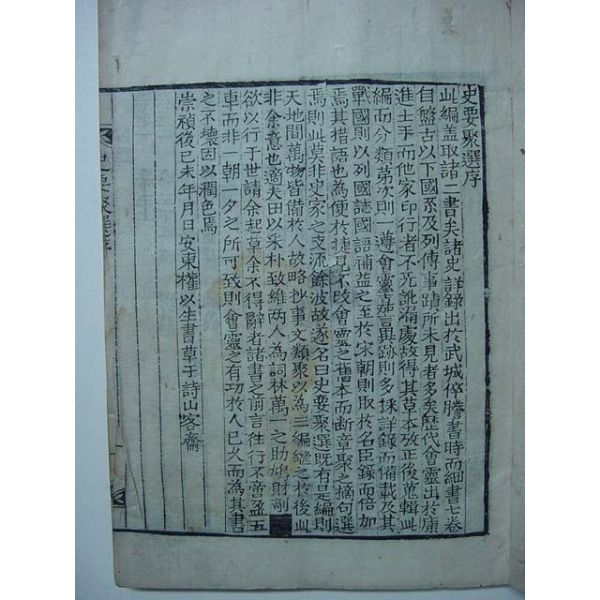 史要聚選序
此編盖取諸二書矣諸史詳錄出於武城倅謄書時而細書七卷
自盤古以下國系及列傳事跡所未見者多矣歷代會靈出於康
進士手而他家印行者不死訛漏處故得其草本攷正後蒐輯此
編而分類苐次則一遵會靈嘉言異跡則多採詳錄而備載及其
戰國則以列國誌國語補益之至於宋朝則取於名臣錄而倍加
焉其措語也為便於捷見不改會靈之舊本而断章聚之摘句選
焉則此莫非史家之支流餘波故遂名曰史要聚選既有是編則
天地間萬物皆備於人故略抄事文類聚以為三編継之於後此
非余意也適夫田以采朴致維两人為詞林萬一之助鳩財剞
欲以行于世請余起草余不得辭者諸書之前言往行不啻盈五
車而非一朝一夕之所可致則會靈之有功於人已久而為其書
之不壊因以櫚色焉
崇禎後己未年月日安東權以生書草于詩山客齋
史要聚選序